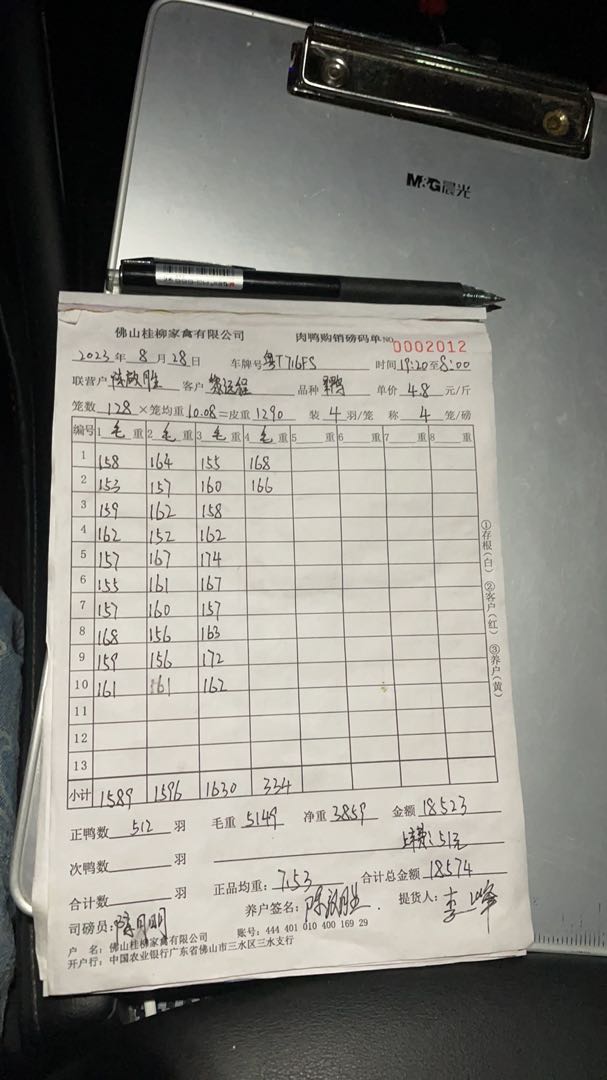 M&G晨光
佛山桂柳家禽有限公司 肉鸭购销磅码单 NO 0002012
2023年 8月 28日 车牌号 粤T716FS 时间 19:20至8:00
联营户 客户 品种 单价 4.8 元/斤
笼数 128 × 笼均重 10.08 = 皮重 1290 装 4 羽/笼 称 4 笼/磅
编号 1 毛 重 2 毛 重 3 毛 重 4 毛 重 5 重 6 重 7 重 8 重
1 158 164 155 168
2 153 157 160 166
3 159 162 158
4 162 152 162
5 157 167 174
6 155 161 167
7 157 160 157
8 168 156 163
9 159 156 172
10 161 161 162
11
12
13
小计 1589 1596 1630 334
①存根(白) ②客户(红) ③养户(黄)
正鸭数 512 羽 毛重 5149 净重 3859 金额 18523
次鸭数 羽 51元
合计数 羽 正品均重: 7.53 合计总金额 18574
司磅员: 养户签名: 提货人: 李峰
户 名: 佛山桂柳家禽有限公司 账号: 444 401 010 400 169 29
开户行: 中国农业银行广东省佛山市三水区三水支行